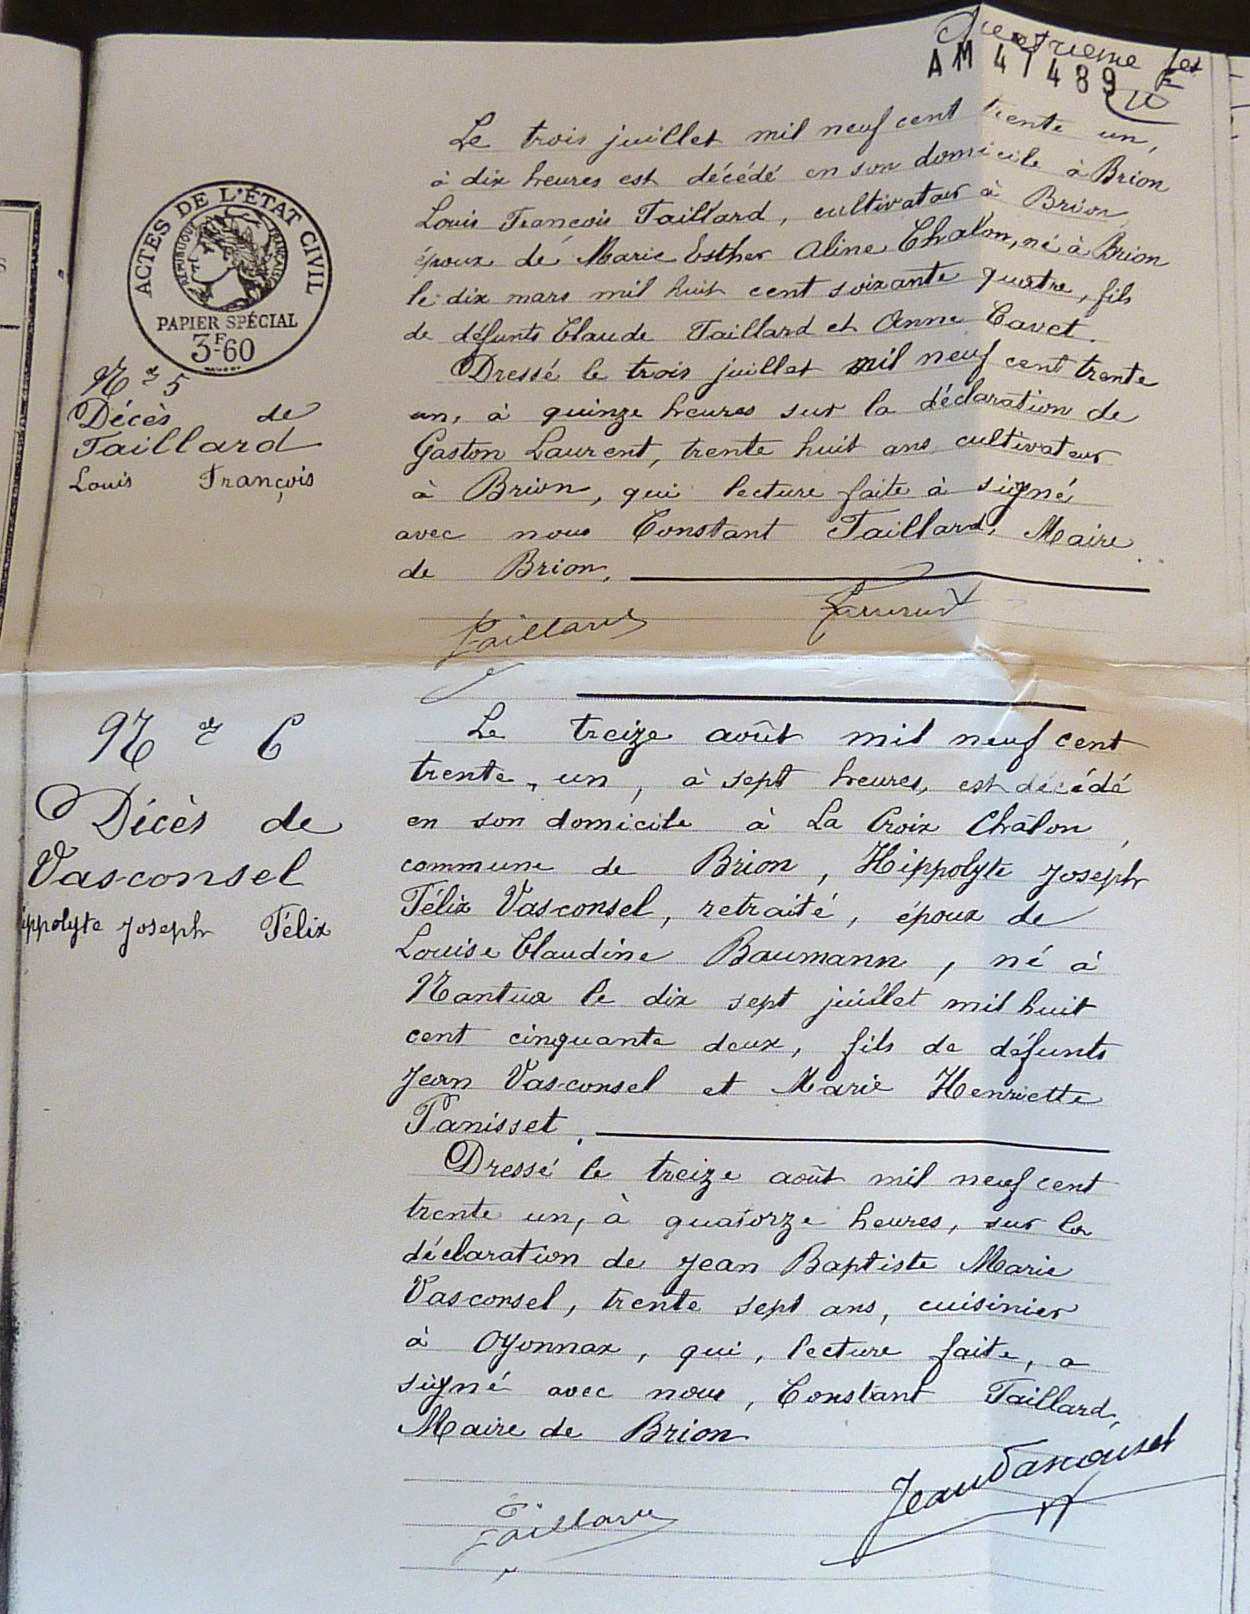 AM 41489
ACTES DE L'ÉTAT CIVIL
RÉPUBLIQUE FRANÇAISE
PAPIER SPÉCIAL
3F-60
Le trois juillet mil neuf cent trente un,
à dix heures est décédé en son domicile à Brion
Louis François Taillard, cultivateur à Brion
époux de Marie Esther Aline Chalon, né à Brion
le dix mars mil huit cent soixante quatre, fils
de défunts Claude Taillard et Anne Cavet.
Dressé le trois juillet mil neuf cent trente
un, à quinze heures sur la déclaration de
Gaston Laurent, trente huit ans cultivateur
à Brion, qui lecture faite à signé
avec nous Constant Taillard, Maire
de Brion.
Nº 5
Décès de
Taillard
Louis François
Taillard Laurent
Le treize août mil neuf cent
trente-un, à sept heures, est décédé
en son domicile à La Croix Châlon,
commune de Brion, Hippolyte Joseph
Félix Vasconsel, retraité, époux de
Louise Claudine Baumann, né à
Nantua le dix sept juillet mil huit
cent cinquante deux, fils de défunts
Jean Vasconsel et Marie Henriette
Panisset.
Dressé le treize août mil neuf cent
trente un, à quatorze heures, sur la
déclaration de Jean Baptiste Marie
Vasconsel, trente sept ans, cuisinier
à Oyonnax, qui, lecture faite, a
signé avec nous, Constant Taillard,
Maire de Brion
Nº 6
Décès de
Vasconsel
ippolyte Joseph Félix
Taillard Jean Vasconsel